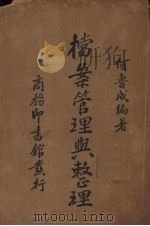 何魯成編著
檔案管理與整理
商務印書館發行
mtoou.info mtoou.info